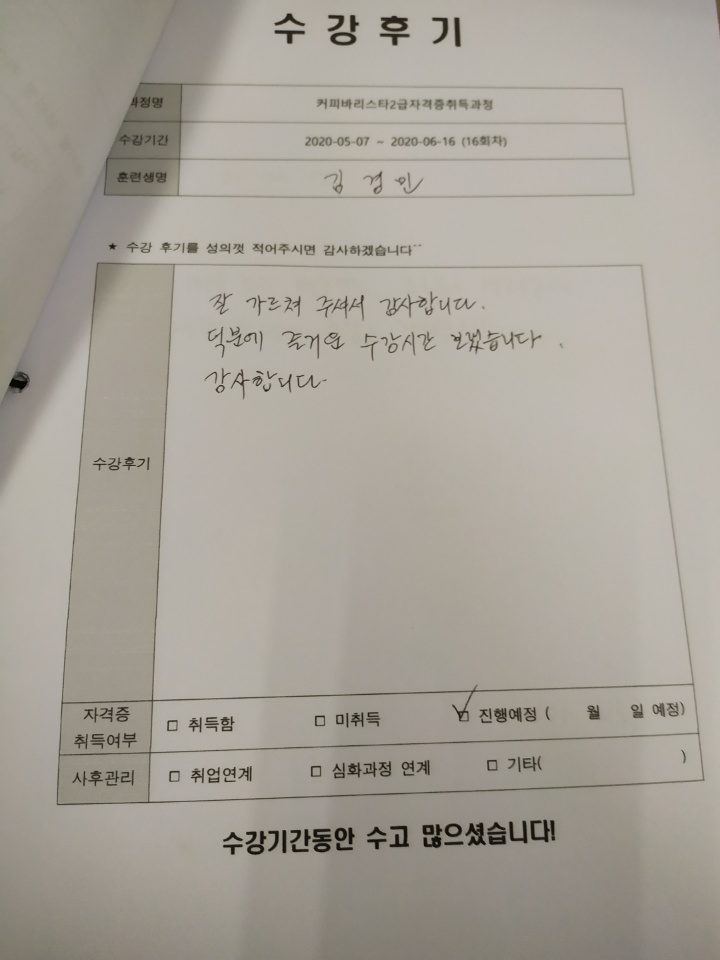 수강후기
과정명 커피바리스타2급자격증취득과정
수강기간 2020-05-07 ~ 2020-06-16 (16회차)
훈련생명 김경인
★ 수강 후기를 성의껏 적어주시면 감사하겠습니다^^
수강후기
잘 가르쳐 주셔서 감사합니다.
덕분에 즐거운 수강시간 보냈습니다.
감사합니다.
자격증
취득여부
□ 취득함 □ 미취득 ☑ 진행예정 ( 월 일 예정)
사후관리 □ 취업연계 □ 심화과정 연계 □ 기타( )
수강기간동안 수고 많으셨습니다!